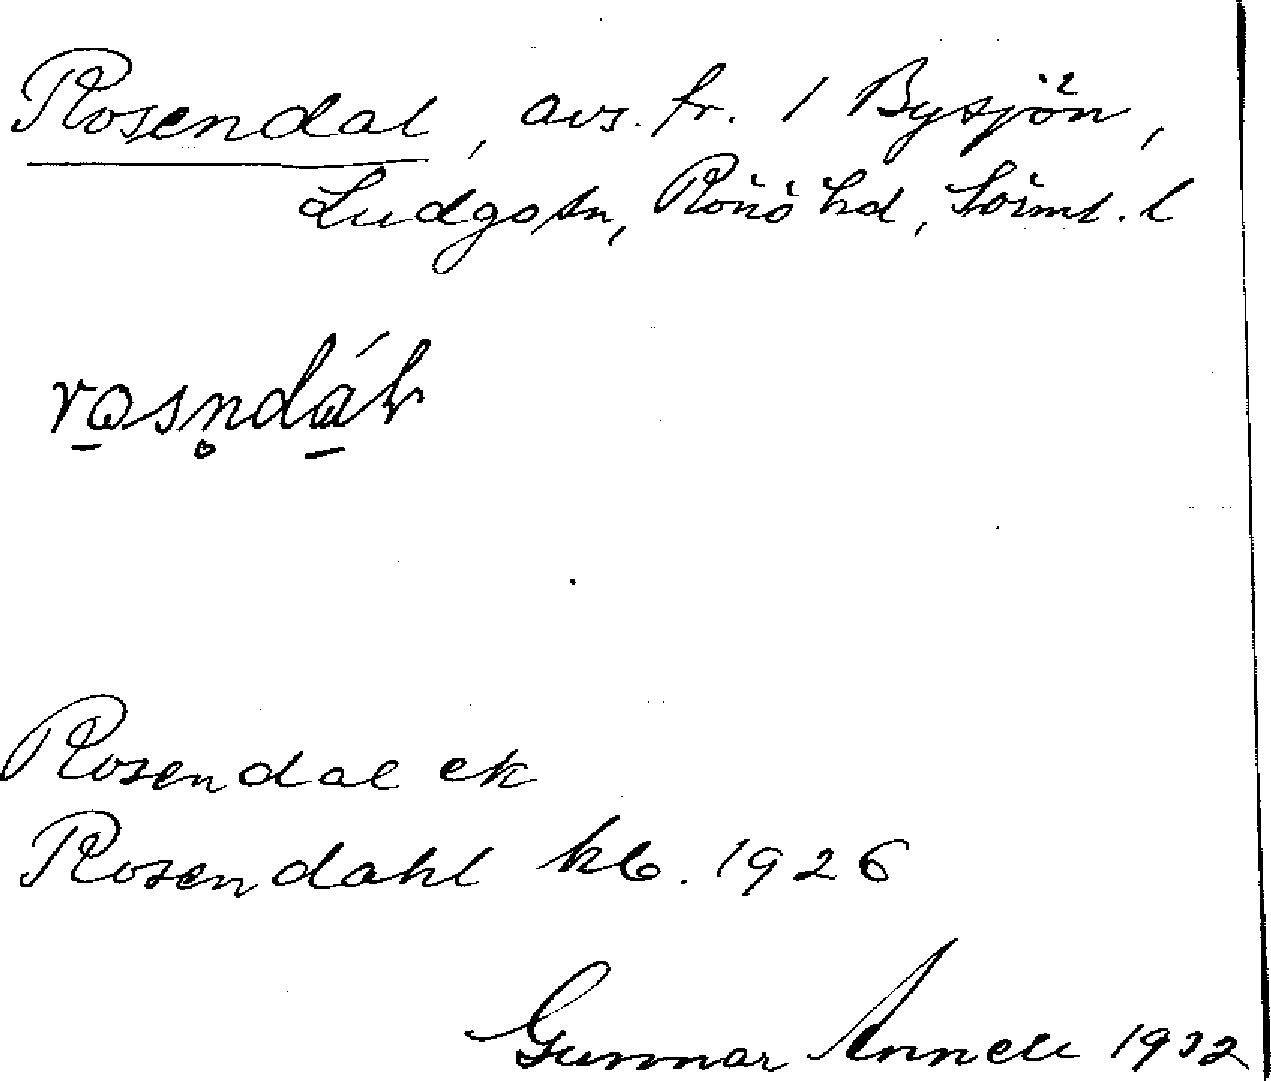 Rosendal, avs. fr. 1 Bysjön,
Ludgo sn, Rönö hd, Sörml. l
rosn̥dál
Rosendal ek
Rosendahl kb. 1926
Gunnar Annell 1932